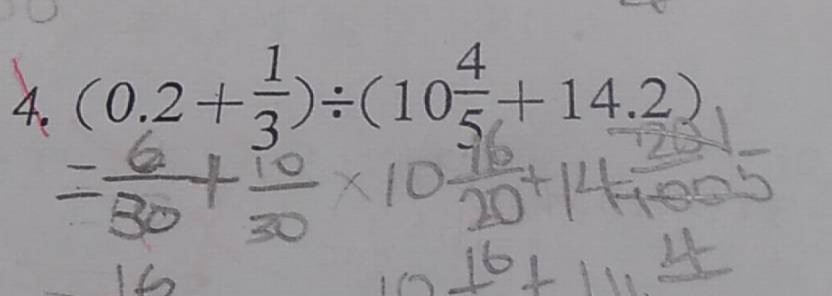 4. (0.2 + 1/3) ÷ (10 4/5 + 14.2)
= 6/30 + 10/30 × 10 16/20 + 14 1/5
16 10 16 + 4